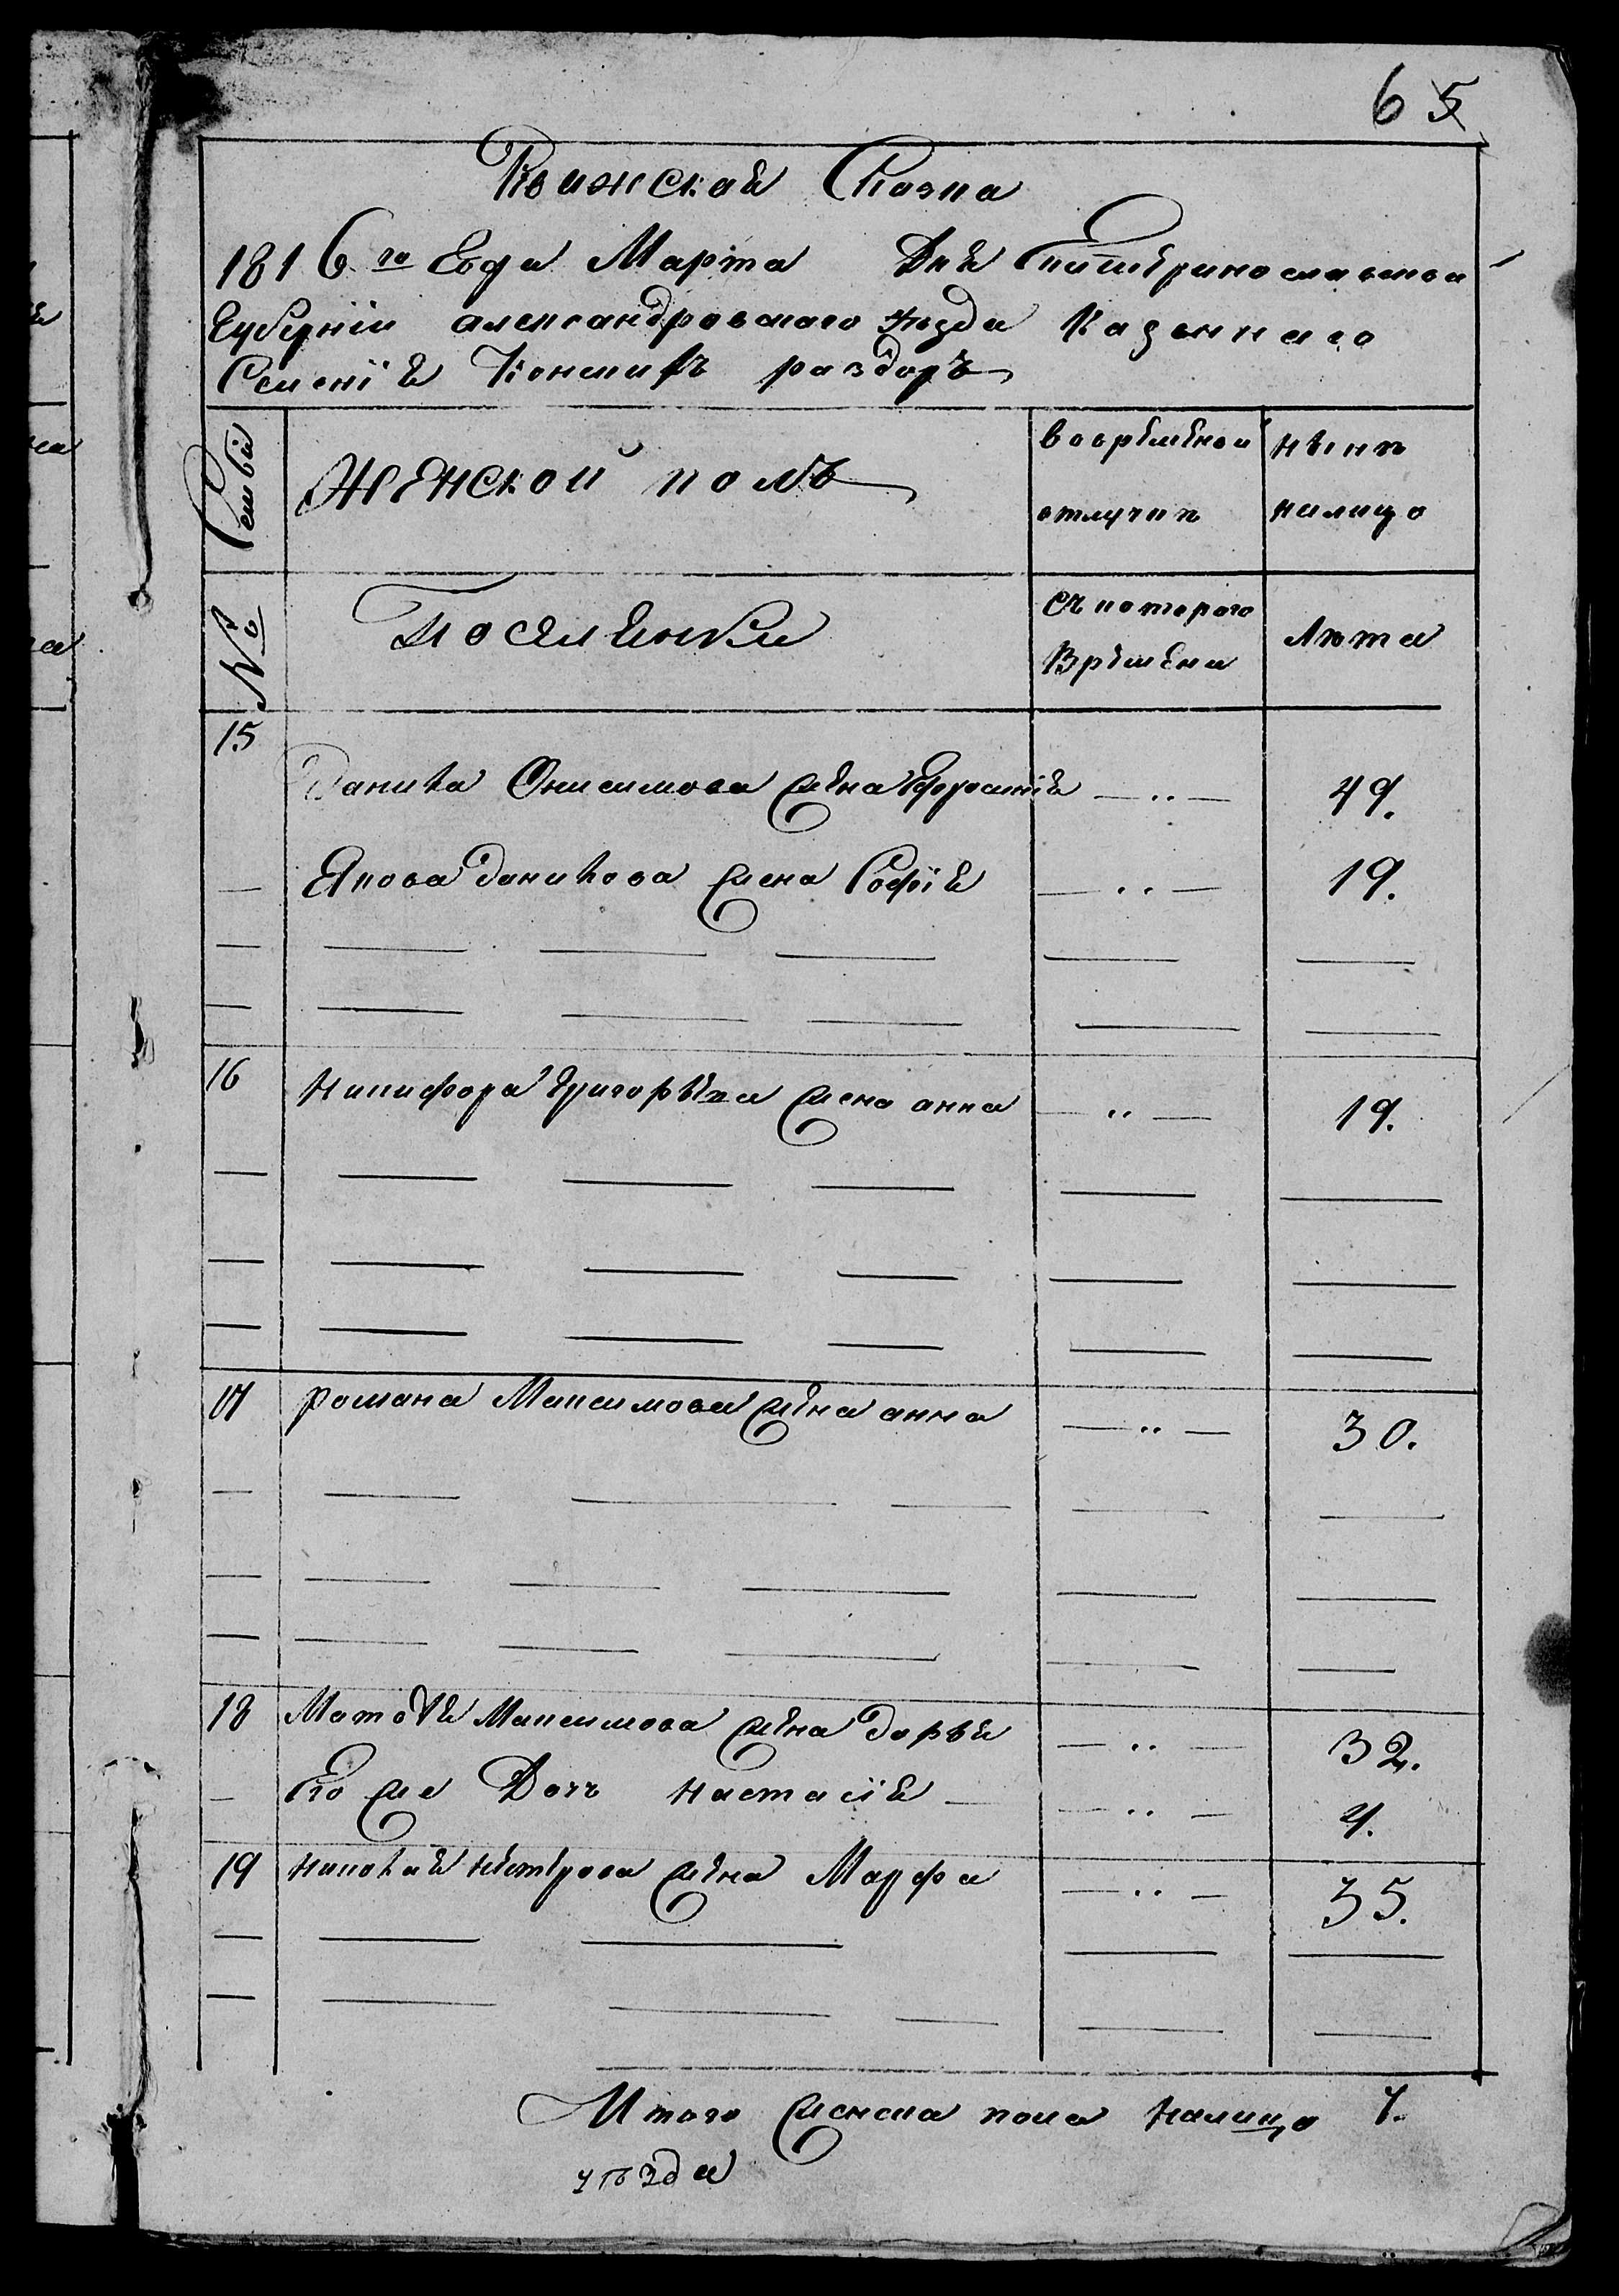 65
Ревижская Сказка
1816го Года Марта Дня Екатеринославской
Губернии александровскаго уѣзда Казеннаго
Селенiя Конскихъ раздоръ
Семьи
Женской полъ
вовременной
отлучкѣ
нынѣ
налицо
№
Поселянки
съ котораго
Времени
Лѣта
15
Данила Онисимова жена Ефросинiя — ·· — 49.
— Якова данилова жена Софiя — ·· — 19.
16 Никифора григорьева жена анна — ·· — 19.
17 романа Максимова жена анна — ·· — 30.
18 Матвѣя Максимова жена дарья — ·· — 32.
— Его же Дочь настасiя — ·· — 4.
19 николая нестерова жена Марфа — ·· — 35.
Итого женска пола налицо 7.
уѣзда